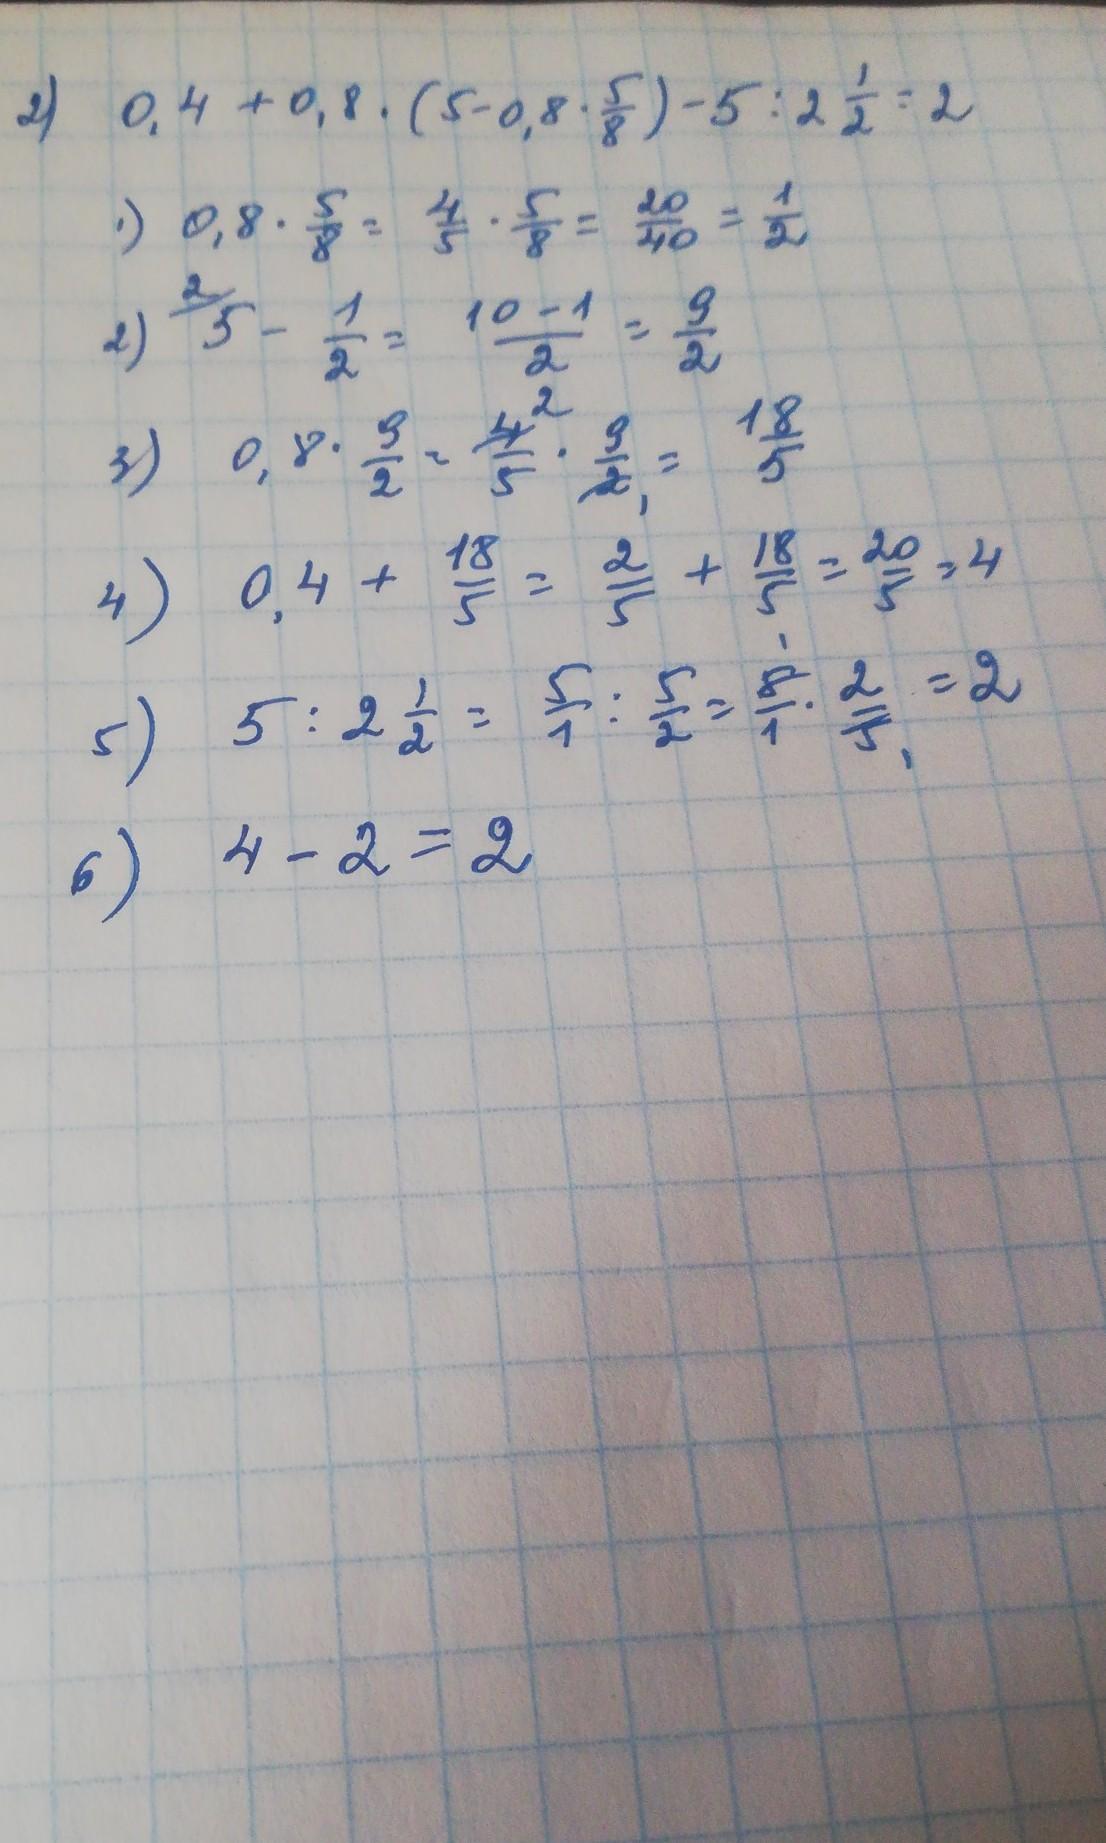 2) 0,4 + 0,8 · (5 - 0,8 · 5/8) - 5 : 2 1/2 = 2
1) 0,8 · 5/8 = 4/5 · 5/8 = 20/40 = 1/2
2) 2/ 5 - 1/2 = 10-1/2 = 9/2
3) 0,8 · 9/2 = 4/5 2 · 9/2 1 = 18/5
4) 0,4 + 18/5 = 2/5 + 18/5 = 20/5 = 4
5) 5 : 2 1/2 = 5/1 : 5/2 = 5/1 · 2/5 1 = 2
6) 4 - 2 = 2